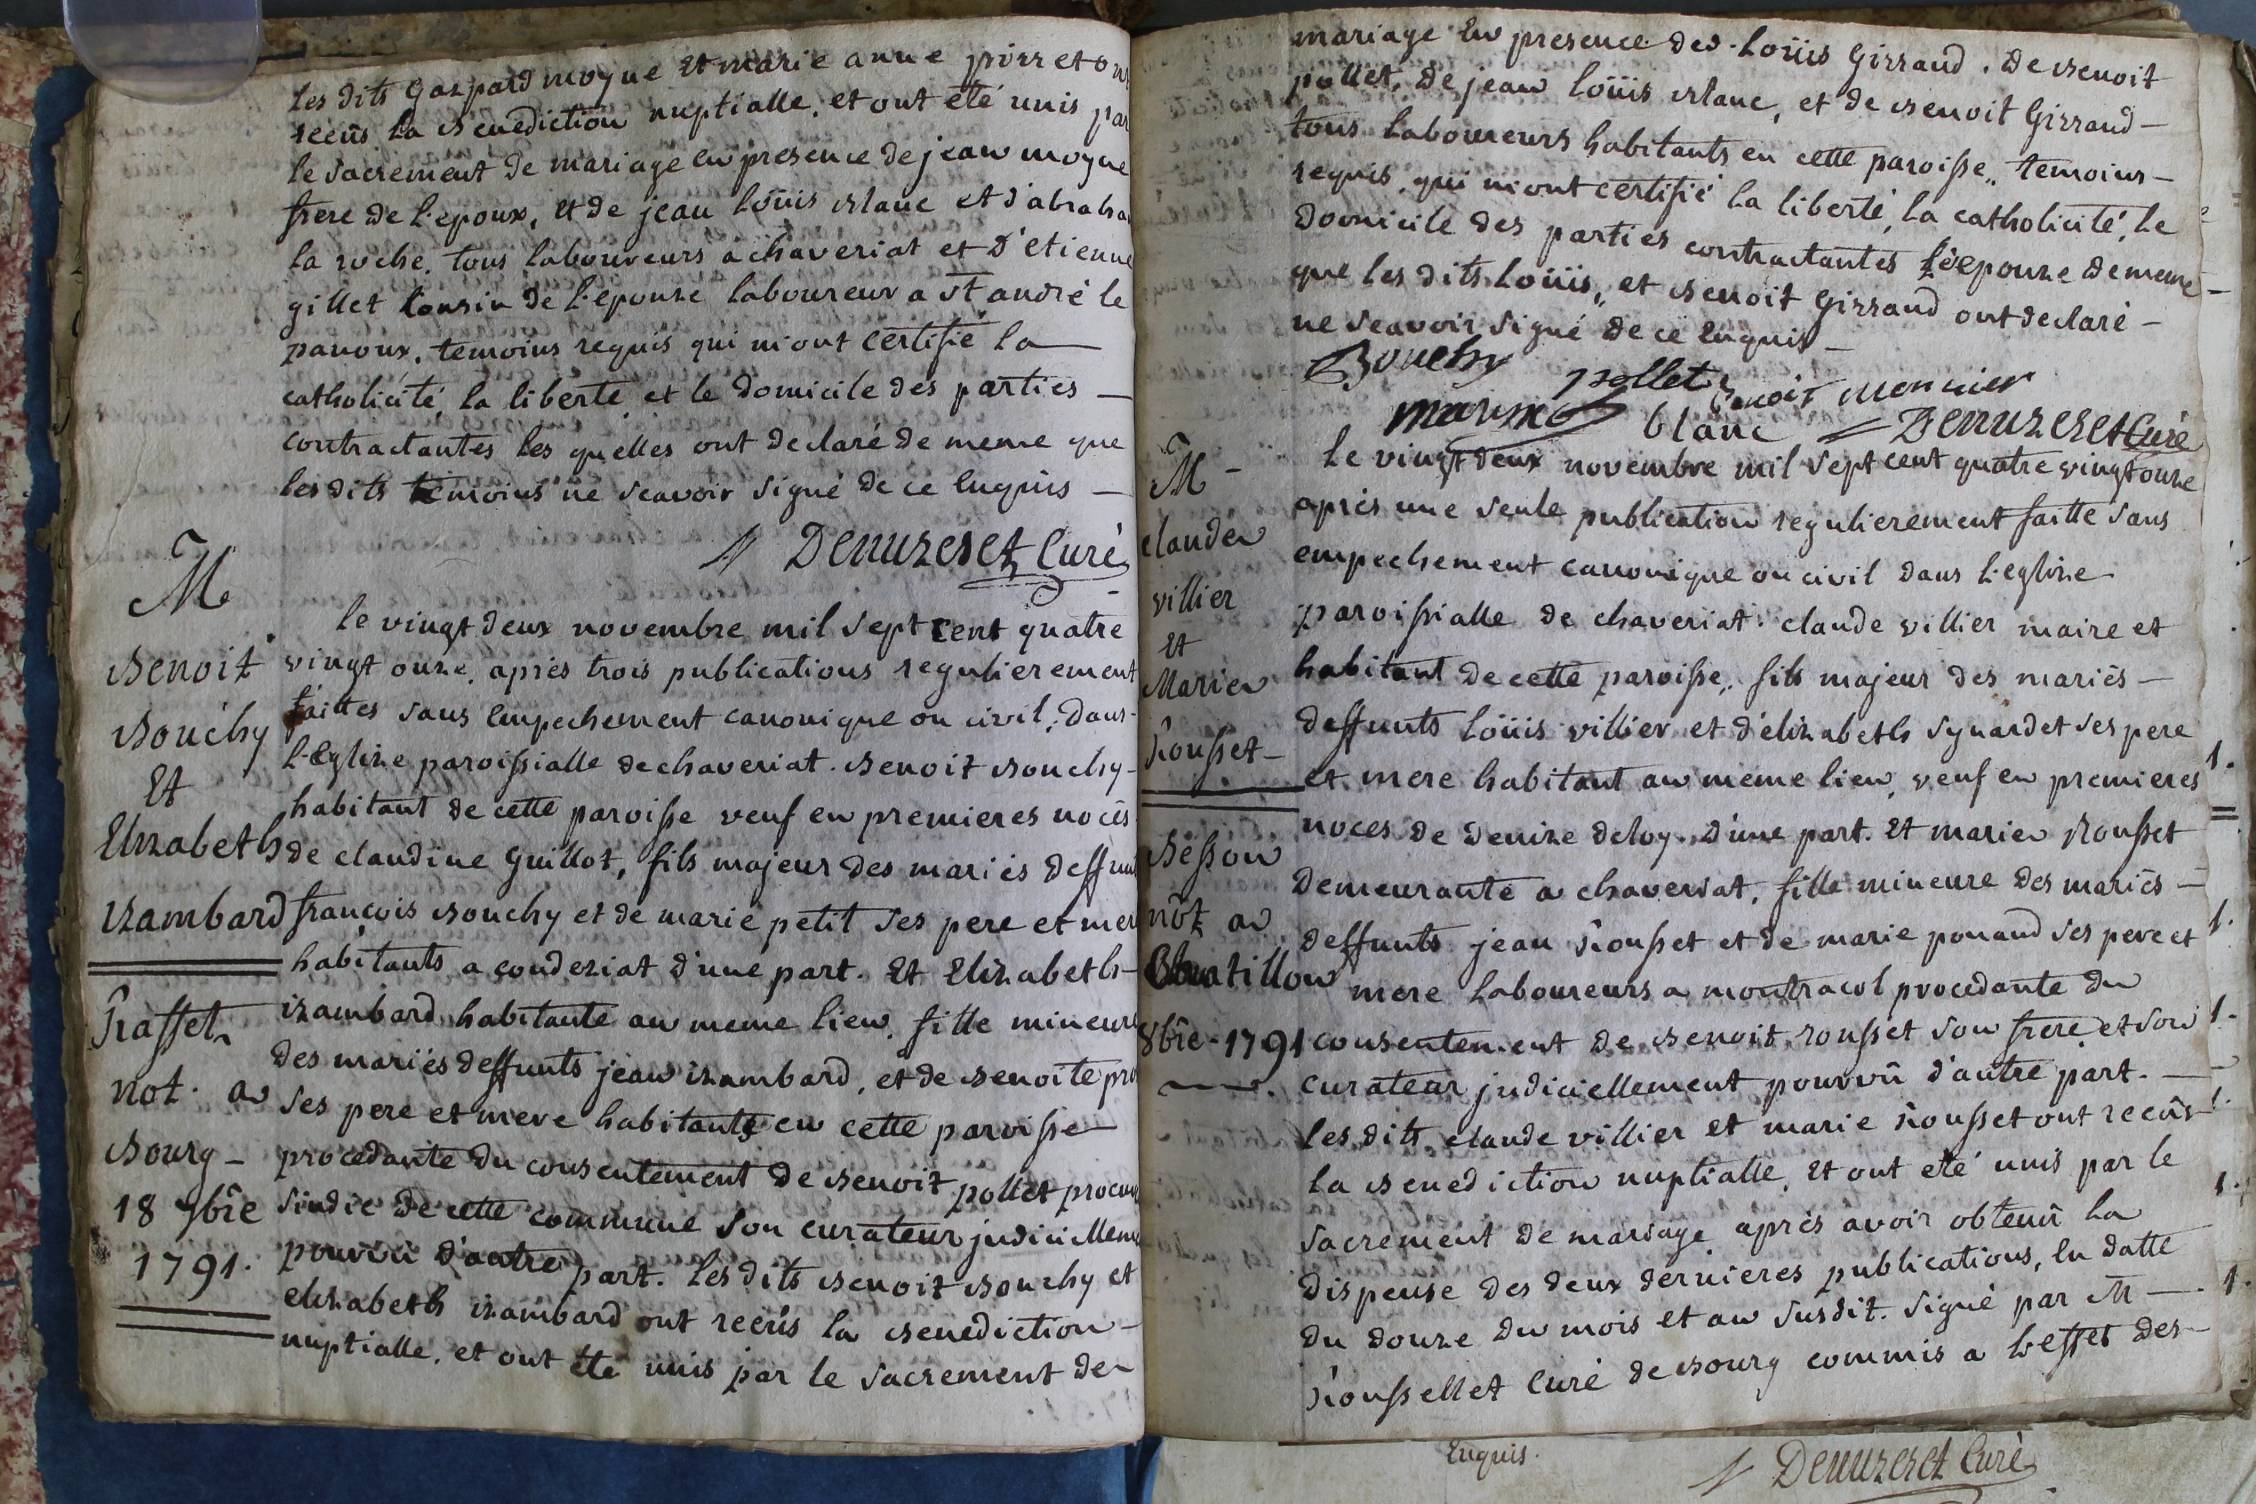 les dits Gaspard moyne Et marie anne pirret ont
recûs la Benediction nuptialle. et ont été unis par
le sacrement de mariage en presence de jean moyne
frere de l'epoux, et de jean loüis Blanc et d'abraha
la roche. tous laboureurs a chaveriat et D'etienne
gillet Cousin de l'epouse laboureur a St andré le
panoux. temoins requis qui m'ont certifié la
catholicité, la liberté et le domicile des parties —
contractantes les quelles ont declaré de meme que
les dits temoins ne scavoir signé de ce Enquis —
Denuzeret Curé
M
Benoit
Bouchy
Et
Elizabeth
Izambard
Raffet
not. a
Bourg —
18 9bre
1791.
le vingt deux novembre mil sept cent quatre
vingt onze. après trois publications regulierement
faittes sans Empechement canonique ou civil. Dans
l'Eglize paroissialle de chaveriat. Benoit Bouchy —
habitant de cette paroisse veuf en premieres noces
de claudine Guillot, fils majeur des mariés deffun
francois Bouchy et de marie petit ses pere et mer
habitants a condeziat d'une part. Et Elizabeth —
izambard habitante au meme lieu, fille mineure
des mariés deffunts jean izambard, et de Benoite pro
ses pere et mere habitants en cette paroisse
procedante du consentement de Benoit pollet procur
sindic de cette commune son curateur judiciellem
pourvû d'autre part. les dits Benoit Bouchy et
elizabeth izambard ont recûs la Benediction —
nuptialle. et ont été unis par le sacrement de
mariage En presence des Loüis Girraud. de Benoit
pollet, de jean loüis Blanc, et de Benoit Girraud —
tous laboureurs habitants en cette paroisse, temoins —
requis, qui m'ont certifié la liberté, la catholicité, le
domicile des parties contractantes l'epouze de meme —
que les dits Loüis, et Benoit Girraud ont declaré —
ne scavoir signé de ce Enquis —
Bouchy pollet Benoit monnier
blanc Denuzeret Curé
M —
claude
villier
et
Marie
Rousset —
Besson
not a
Chatillon
8bre 1791
le vingt deux novembre mil sept cent quatre vingt onze
après une seule publication regulierement faitte sans
empechement canonique ou civil dans l'eglize
paroissialle de chaveriat. claude villier maire et
habitant de cette paroisse, fils majeur des mariés —
deffunts loüis villier et d'elizabeth synardet ses pere
et mere habitant au meme lieu, veuf en premieres
noces de Denize deloy. d'une part. Et marie Rousset
demeurante a chaveriat, fille mineure des mariés —
deffunts jean Rousset et de marie ponand ses pere et
mere laboureurs a montracol procedante du
consentement de Benoit rousset son frere et son
curateur judiciellement pourvû d'autre part. —
les dits claude villier Et marie Rousset ont recûs
la Benediction nuptialle, Et ont eté unis par le
sacrement de mariage après avoir obtenû la
dispense des deux dernieres publications, En datte
du douze du mois et an susdit. signé par M —
Roussellet Curé de Bourg commis a l'effet des
Enquis.
Denuzeret Curé